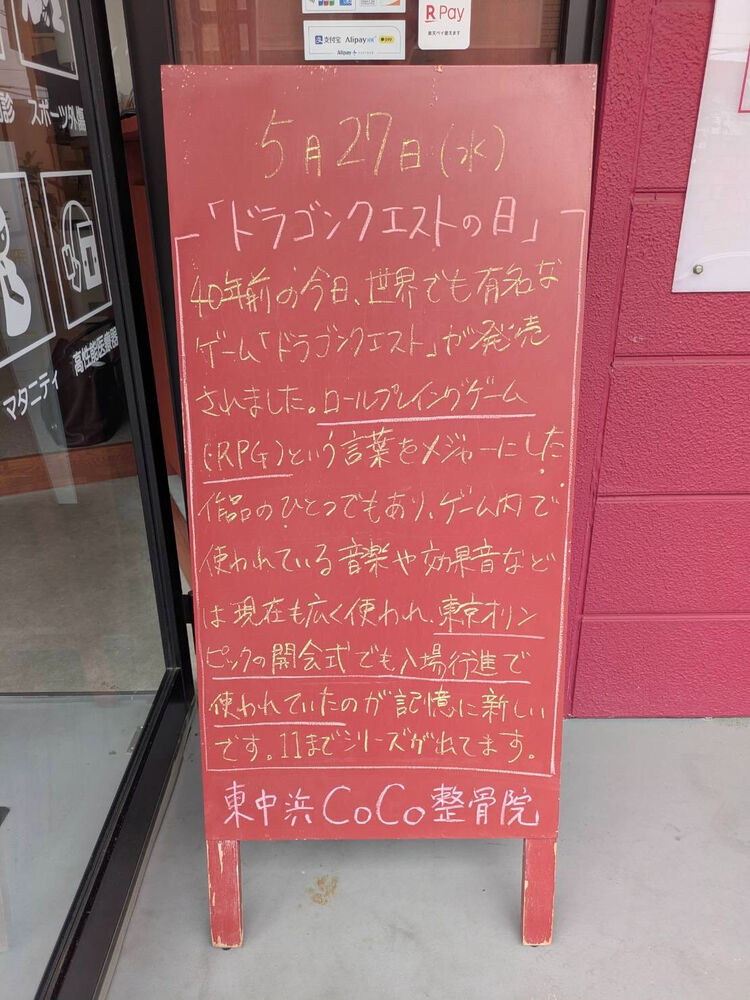 支付宝 Alipay
Alipay
R Pay
楽天ペイ使えます
スポーツ外傷
マタニティ
高性能医療器
5月27日(水)
「ドラゴンクエストの日」
40年前の今日、世界でも有名な
ゲーム「ドラゴンクエスト」が発売
されました。ロールプレイングゲーム
(RPG)という言葉をメジャーにした
作品のひとつでもあり、ゲーム内で
使われている音楽や効果音など
は現在も広く使われ、東京オリン
ピックの開会式でも入場行進で
使われていたのが記憶に新しい
です。11までシリーズがでてます。
東中浜CoCo整骨院